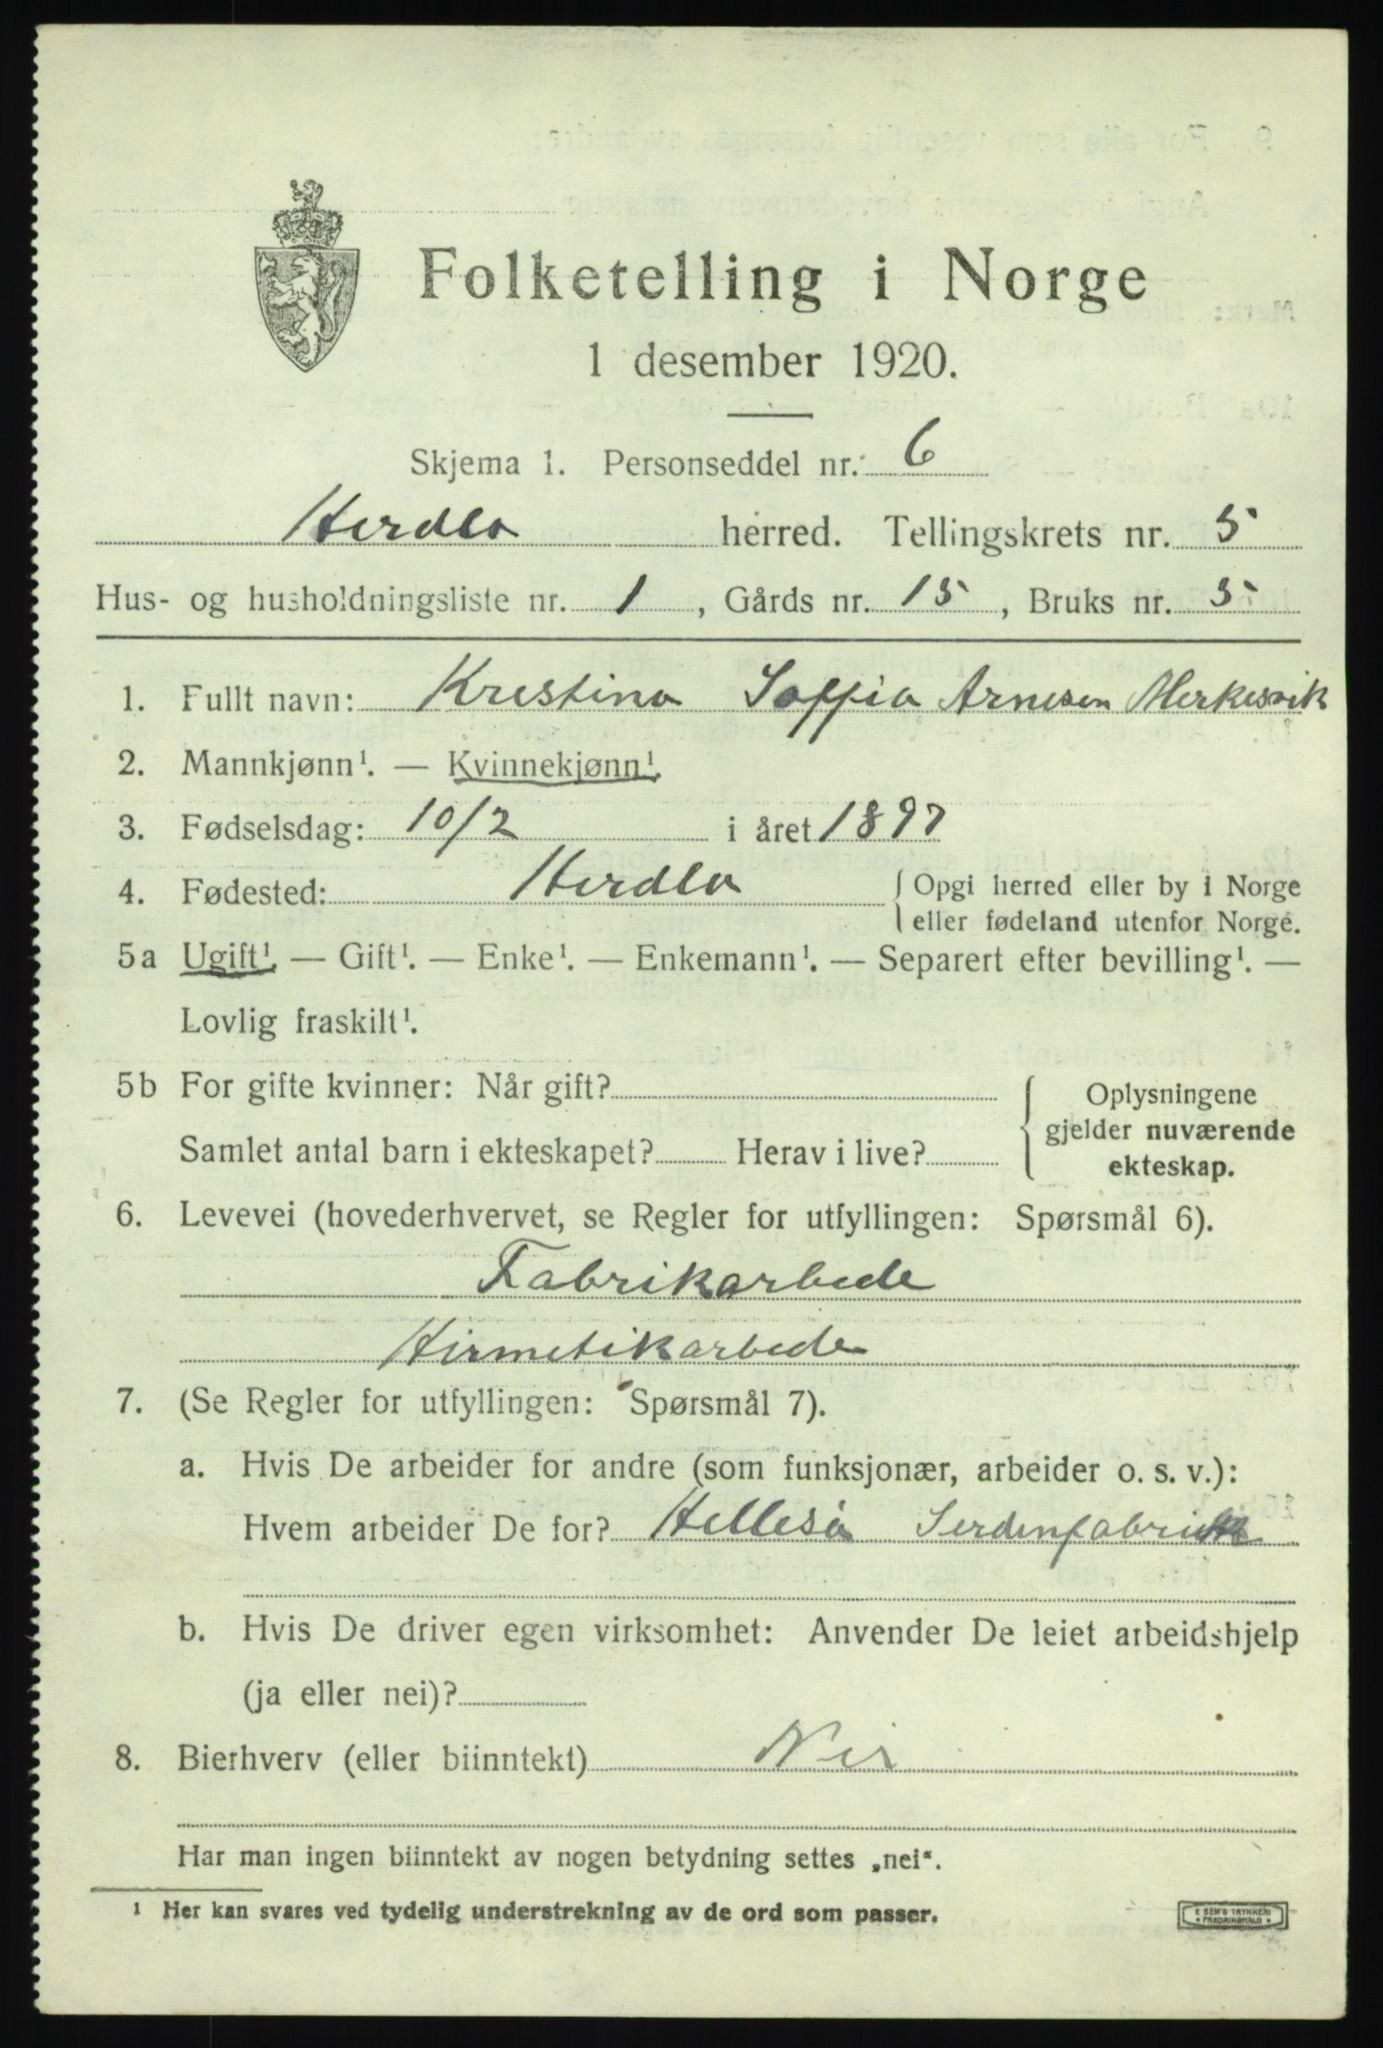 Folketelling i Norge
1 desember 1920.
Skjema 1. Personseddel nr. 6
Herdla herred. Tellingskrets nr. 5
Hus- og husholdningsliste nr. 1, Gårds nr. 15, Bruks nr. 5
1. Fullt navn: Krestina Soffia Arnesen Merkesvik
2. Mannkjønn¹. — Kvinnekjønn¹.
3. Fødselsdag: 10/2 i året 1897
4. Fødested: Herdla { Opgi herred eller by i Norge
eller fødeland utenfor Norge.
5a Ugift¹. — Gift¹. — Enke¹. — Enkemann¹. — Separert efter bevilling¹. —
Lovlig fraskilt¹.
5b For gifte kvinner: Når gift? { Oplysningene
gjelder nuværende
Samlet antal barn i ekteskapet? Herav i live? ekteskap.
6. Levevei (hovederhvervet, se Regler for utfyllingen: Spørsmål 6).
Fabrikarbede
Hirmetikarbede
7. (Se Regler for utfyllingen: Spørsmål 7).
a. Hvis De arbeider for andre (som funksjonær, arbeider o. s. v.):
Hvem arbeider De for? Hellesø Serdinfabrikk
b. Hvis De driver egen virksomhet: Anvender De leiet arbeidshjelp
(ja eller nei)?
8. Bierhverv (eller biinntekt) Nei
Har man ingen biinntekt av nogen betydning settes „nei“.
¹ Her kan svares ved tydelig understrekning av de ord som passer.
E SEM'S TRYKKERI
FREDRIKSHALD